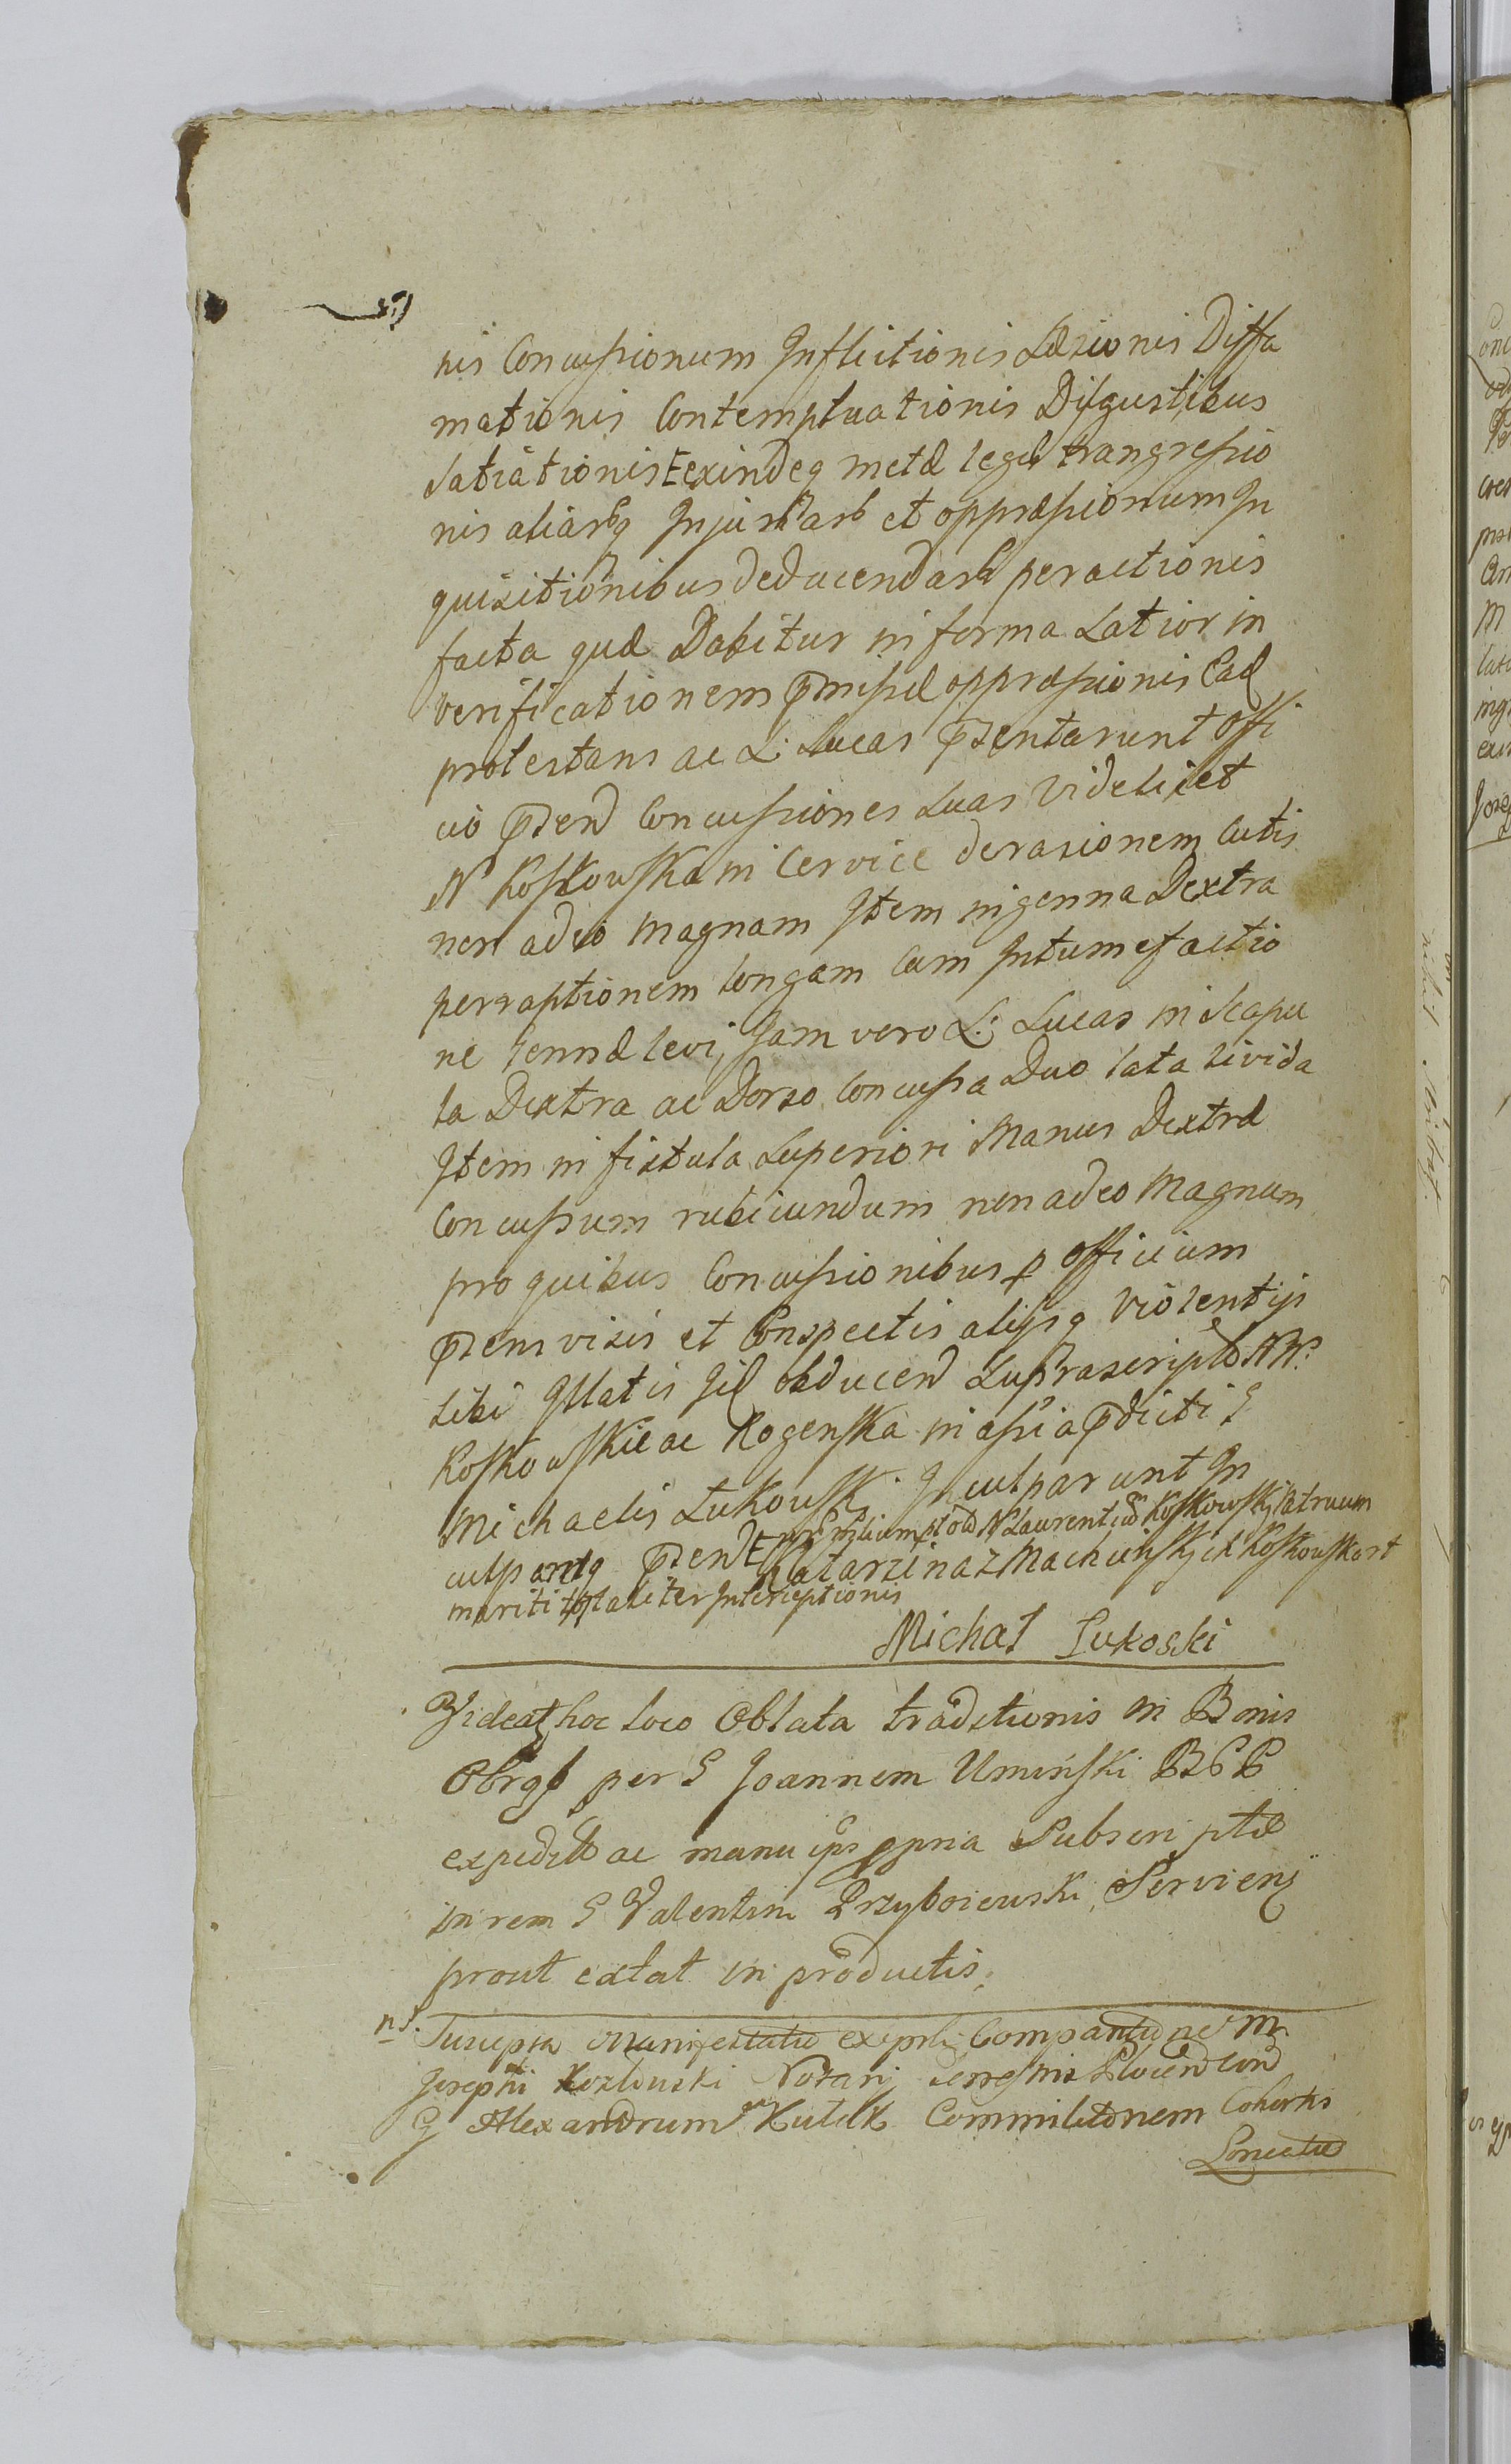 nis Concussionum Inflictionis Læzionis Diffa
mationis Contemptuationis Disgustibus
Satiationis Eexindeq metæ legis trangressio
nis aliarq Injuriar et oppræssionum In
quizitionibus deducendar peractionis
facta quæ Dabitur in forma Latior in
verificationem præmissæ oppræssionis Ead
protestans ac L: Lucas præsentarunt Offi
cio præsen Concussiones suas Videlicet
N Koskowska in Cervice derasionem Cutis
non adeo magnam Item in genna Dextra
perraptionem longam Cum Intumefactio
ne gennæ levi, Jam vero L: Lucas in Scapu
la Dextra ac Dorso Concussa Duo lata livida
Item in fistula Superiori Manus Dextræ
Concussum rubicundum non adeo Magnum
pro quibus Concussionibus p officium
præsens visis et Conspectis alijsq Violentijs
sibi Illatis Jid obducend Suprascript NN:
Koskowskie ac Rogenska in assia prædicti G
Michaelis Łukowski Inculparunt In
culpantq præsen Laurentium Koskowski Patruum
mariti totaliter Interceptionis
Katarzina z Machcinskich Koskowska rt
Michał Łukoski
Videat hoc loco Oblata traditionis in Bonis
Obrąb per G Joannem Uminski BGP
expedit ac manu ips ppria Subscriptæ
in rem G Valentini Przyboiewski Servienţ
prout extat in productis.
ns. Suscepta Manifestatio ex prli Compantione M
Josephi Kozłowski Notarij Terrestris Plocen con
G Alexandrum Kutelk Commilitonem Cohortis
Loricatæ